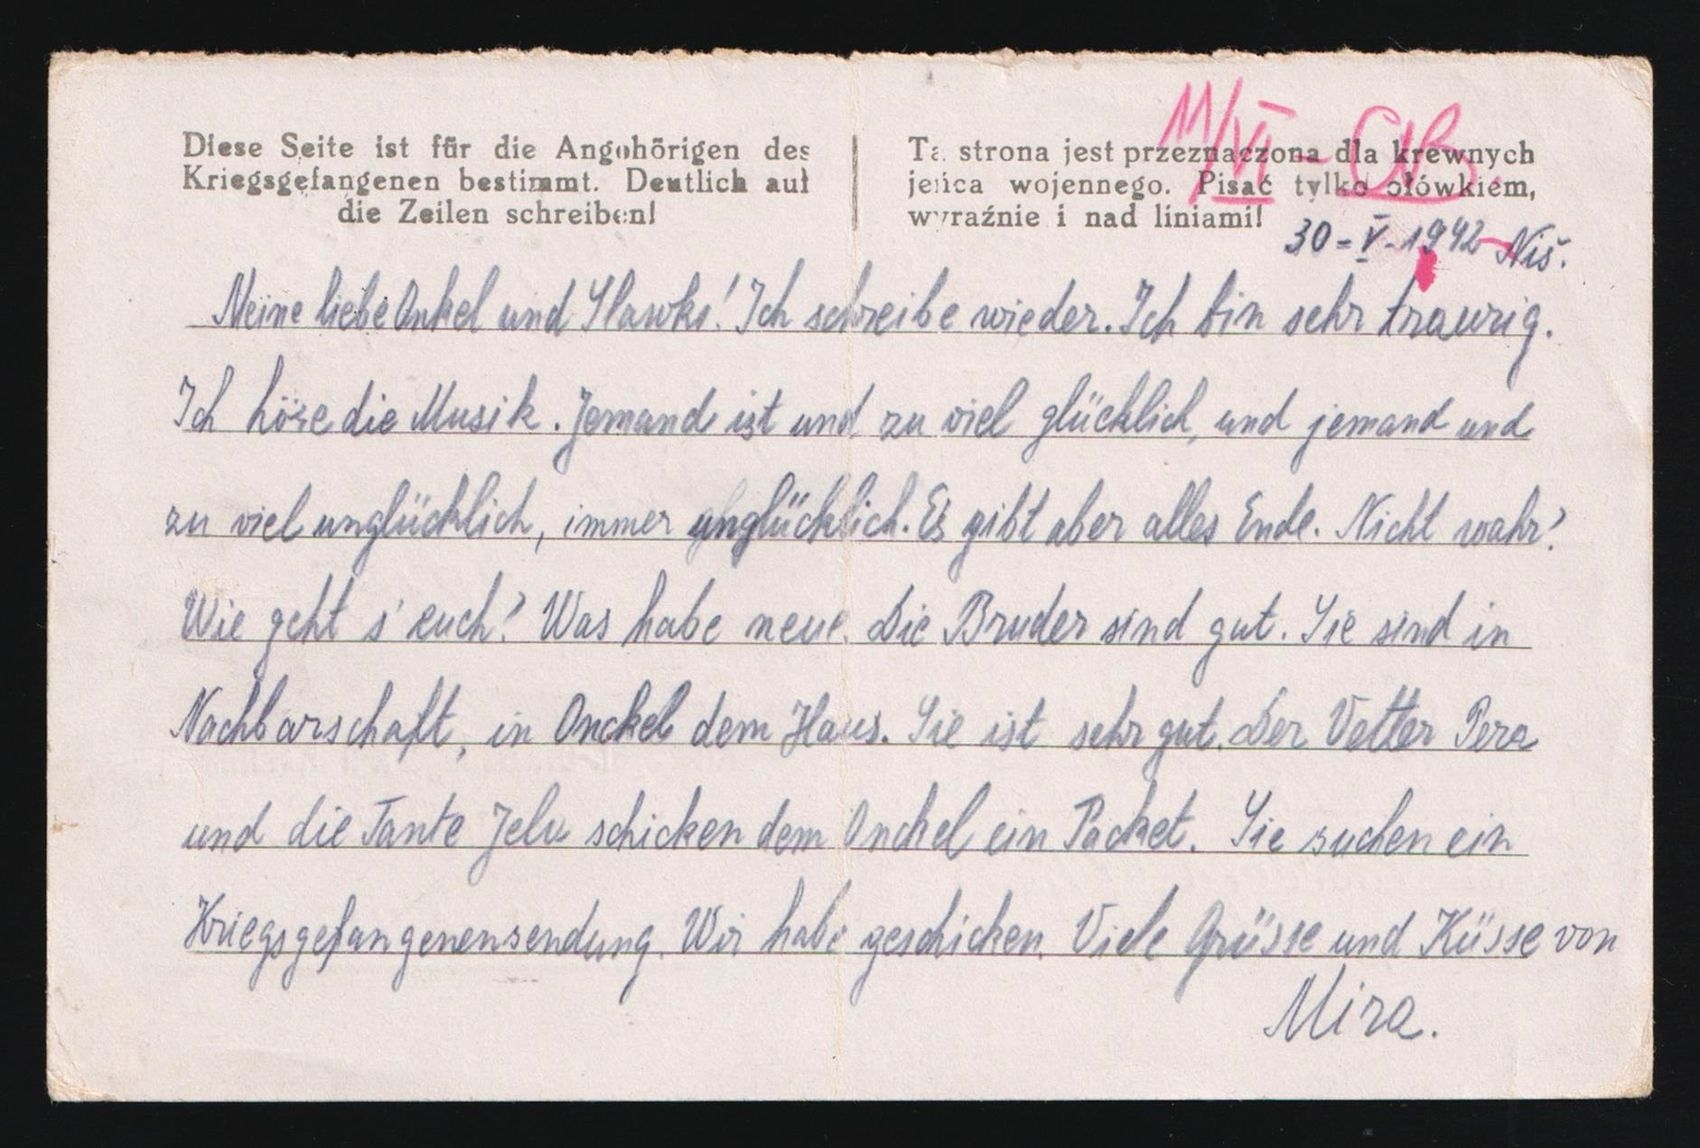 Diese Seite ist für die Angehörigen des
Kriegsgefangenen bestimmt. Deutlich auf
die Zeilen schreiben!
Ta strona jest przeznaczona dla krewnych
jeńca wojennego. Pisać tylko ołówkiem,
wyraźnie i nad liniami!
11/VI -
30-V-1942 Niš.
Meine liebe Onkel und Slawko! Ich schreibe wieder. Ich bin sehr traurig.
Ich höre die Musik. Jemand ist und zu viel glücklich, und jemand und
zu viel unglücklich, immer unglücklich. Es gibt aber alles Ende. Nicht wahr?
Wie geht s' euch? Was habe neue. Die Bruder sind gut. Sie sind in
Nachbarschaft, in Onckel dem Haus. Sie ist sehr gut. Der Vetter Pera
und die Tante Jela schicken dem Onckel ein Packet. Sie suchen ein
Kriegsgefangenensendung. Wir habe geschicken. Viele Grüsse und Küsse von
Mira.